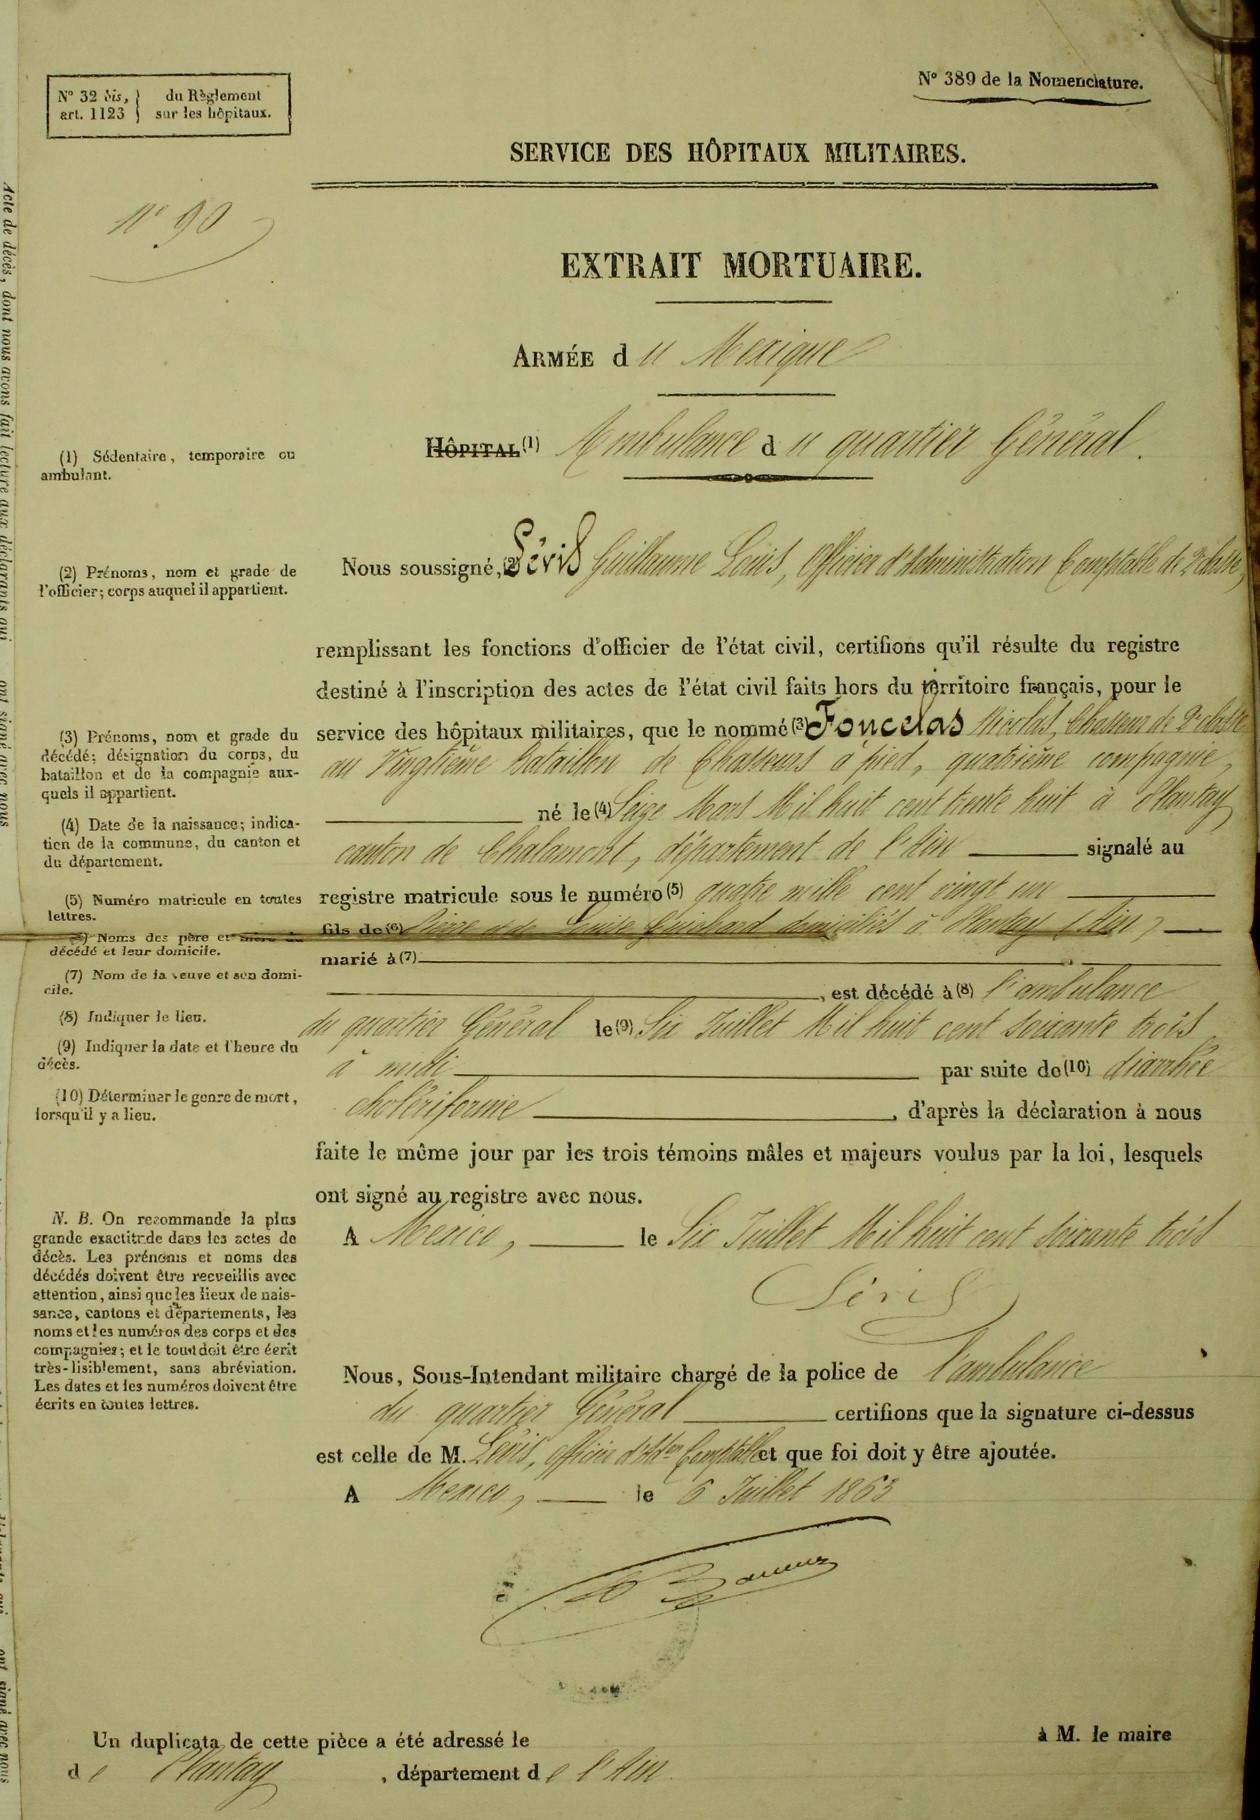 N° 32 bis, art. 1123 } du Règlement sur les hôpitaux.
N° 389 de la Nomenclature.
SERVICE DES HÔPITAUX MILITAIRES.
N° 90
EXTRAIT MORTUAIRE.
ARMÉE du Mexique
HÔPITAL (1) Ambulance du quartier Général.
(1) Sédentaire, temporaire ou
ambulant.
Nous soussigné, (2) Séris Guillaume Louis, Officier d'Administration Comptable de 2e classe,
(2) Prénoms, nom et grade de
l'officier; corps auquel il appartient.
remplissant les fonctions d'officier de l'état civil, certifions qu'il résulte du registre
destiné à l'inscription des actes de l'état civil faits hors du territoire français, pour le
service des hôpitaux militaires, que le nommé (3) Foncelas Nicolas, Chasseur de 2e classe
au Vingtième Bataillon de Chasseurs à pied, quatrième compagnie,
né le (4) Seize Mars Mil huit cent trente huit à Plantay
canton de Chalamont, département de l'Ain signalé au
registre matricule sous le numéro (5) quatre mille cent vingt un
fils de (6) Pierre et de Louise Guichard domiciliés à Plantay (Ain),
marié à (7)
, est décédé à (8) l'ambulance
du quartier Général le (9) Six Juillet Mil huit cent soixante trois
à midi par suite de (10) diarrhée
cholériforme, d'après la déclaration à nous
faite le même jour par les trois témoins mâles et majeurs voulus par la loi, lesquels
ont signé au registre avec nous.
A Mexico, le Six Juillet Mil huit cent soixante trois
Séris
(3) Prénoms, nom et grade du
décédé; désignation du corps, du
bataillon et de la compagnie aux-
quels il appartient.
(4) Date de la naissance; indica-
tion de la commune, du canton et
du département.
(5) Numéro matricule en toutes
lettres.
(6) Noms des père et mère du
décédé et leur domicile.
(7) Nom de la veuve et son domi-
cile.
(8) Indiquer le lieu.
(9) Indiquer la date et l'heure du
décès.
(10) Déterminer le genre de mort,
lorsqu'il y a lieu.
N. B. On recommande la plus
grande exactitude dans les actes de
décès. Les prénoms et noms des
décédés doivent être recueillis avec
attention, ainsi que les lieux de nais-
sance, cantons et départements, les
noms et les numéros des corps et des
compagnies; et le tout doit être écrit
très-lisiblement, sans abréviation.
Les dates et les numéros doivent être
écrits en toutes lettres.
Nous, Sous-Intendant militaire chargé de la police de l'ambulance
du quartier Général certifions que la signature ci-dessus
est celle de M. Séris, officier d'Adon Comptable et que foi doit y être ajoutée.
A Mexico, le 6 Juillet 1863
Un duplicata de cette pièce a été adressé le à M. le maire
de Plantay, département de l'Ain
Acte de décès, dont nous avons fait lecture aux déclarants qui ont signé avec nous